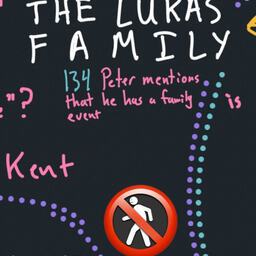 THE LUKAS
FAMILY
134 Peter mentions
that he has a family
event
e"?
is
Kent